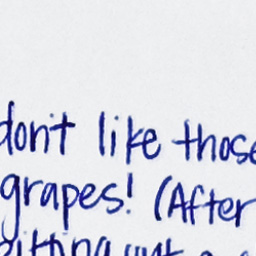 don't like those
grapes! (After